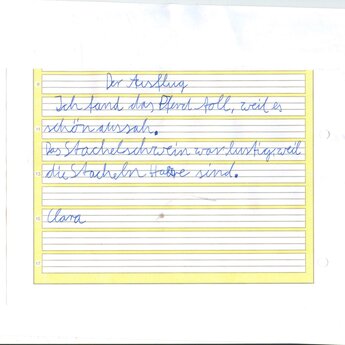 Der Ausflug
Ich fand das Pferd toll, weil es
schön aussah.
Das Stachelschwein war lustig, weil
die Stacheln Haare sind.
Clara